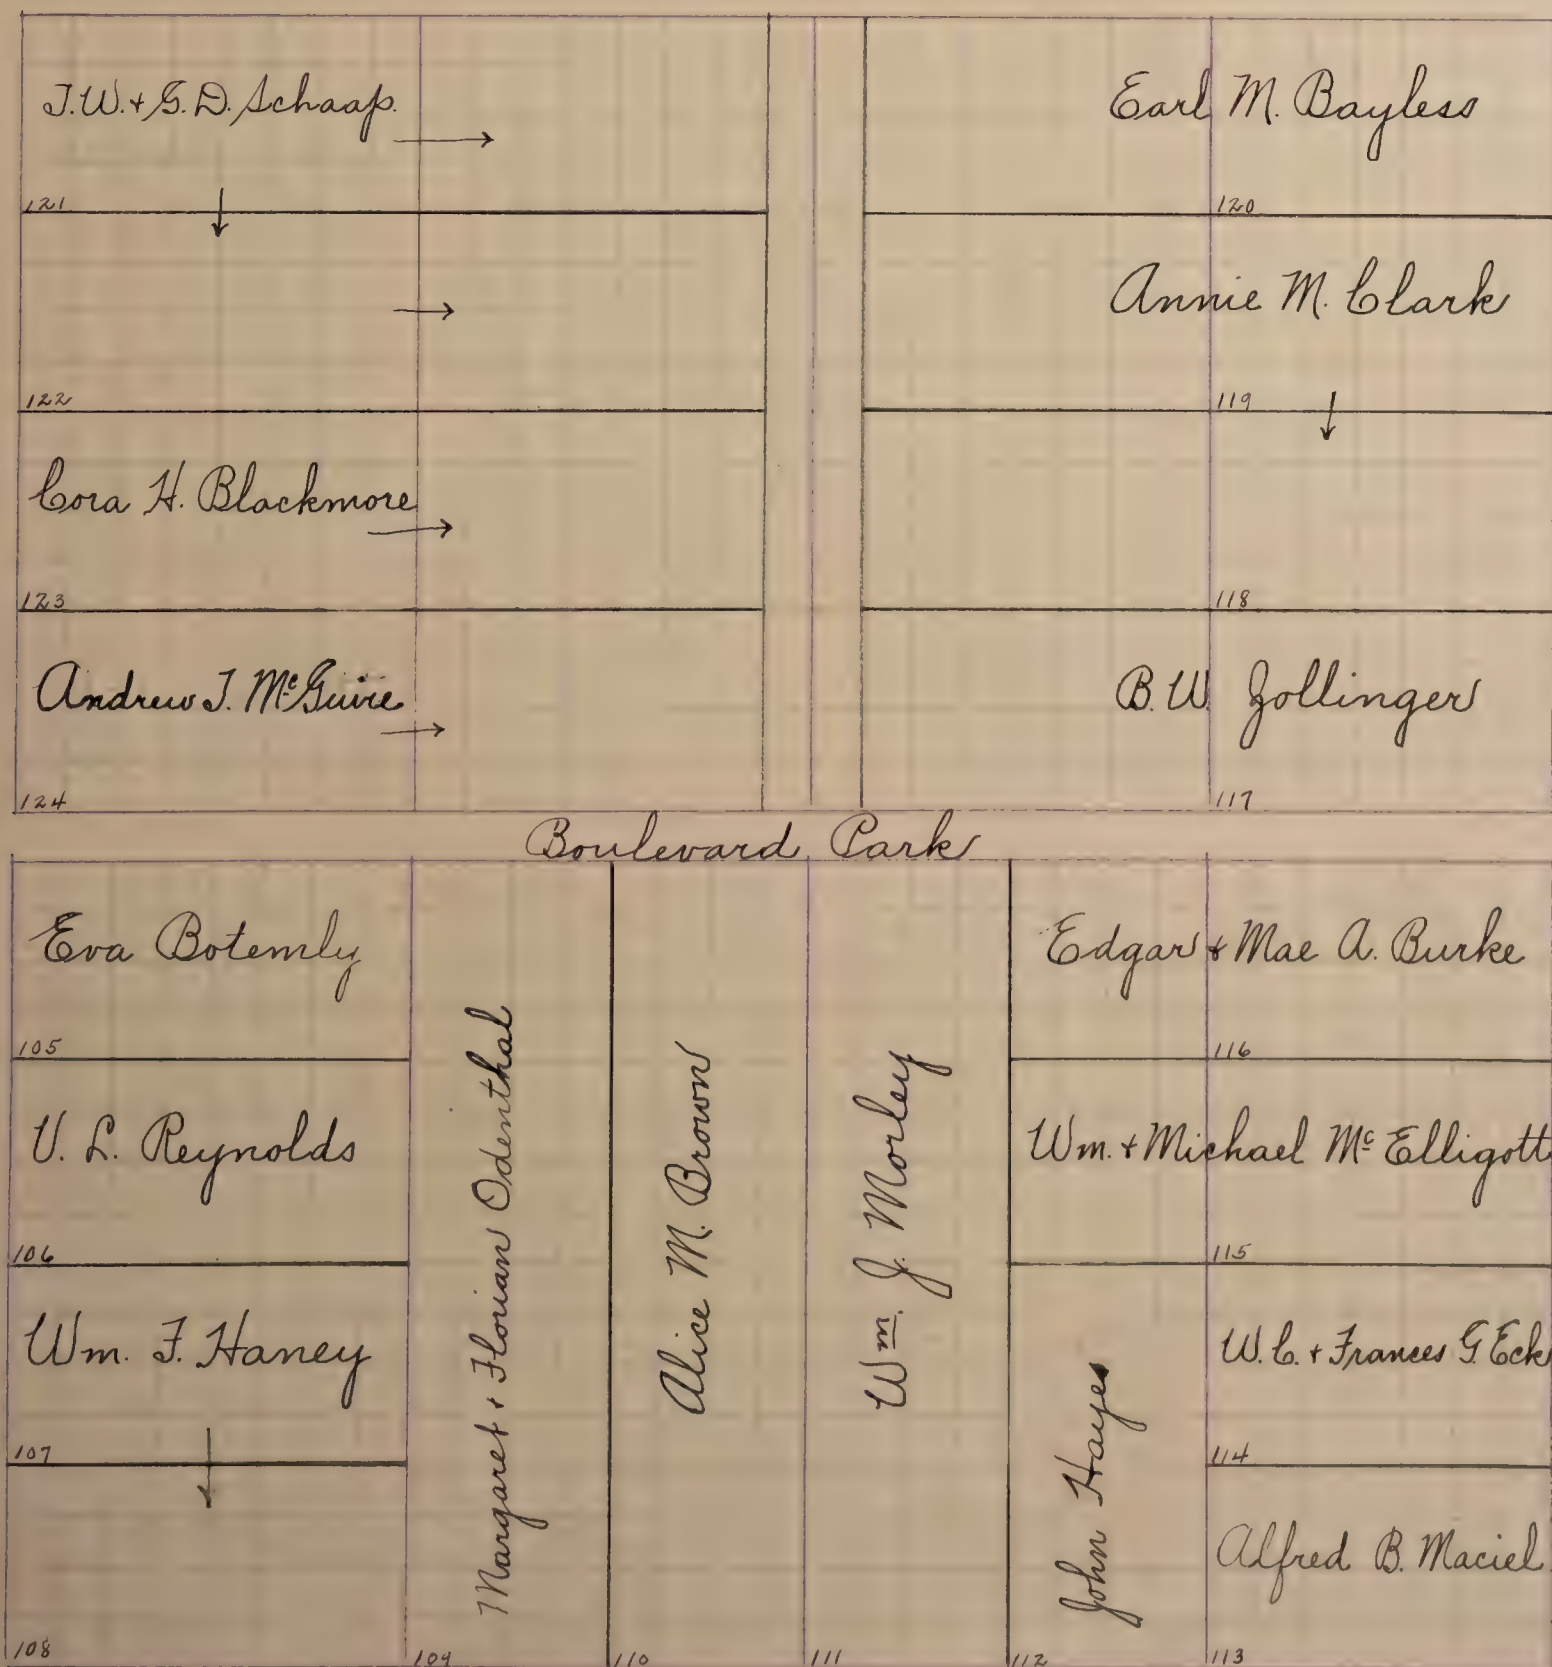 J.W. + G.D. Schaap.
121
122
Cora H. Blackmore
123
Andrew J. McGuire
124
Earl M. Bayless
120
Annie M. Clark
119
118
B.W. Zollinger
117
Boulevard Park
Eva Botemly
105
V. L. Reynolds
106
Wm. F. Haney
107
108
Margaret + Florian Odenthal
109
Alice M. Brown
110
Wm. J. Morley
111
Edgar + Mae A. Burke
116
Wm. + Michael Mc Elligott
115
John Hayes
112
W.C. + Frances G. Eck
114
Alfred B. Maciel
113